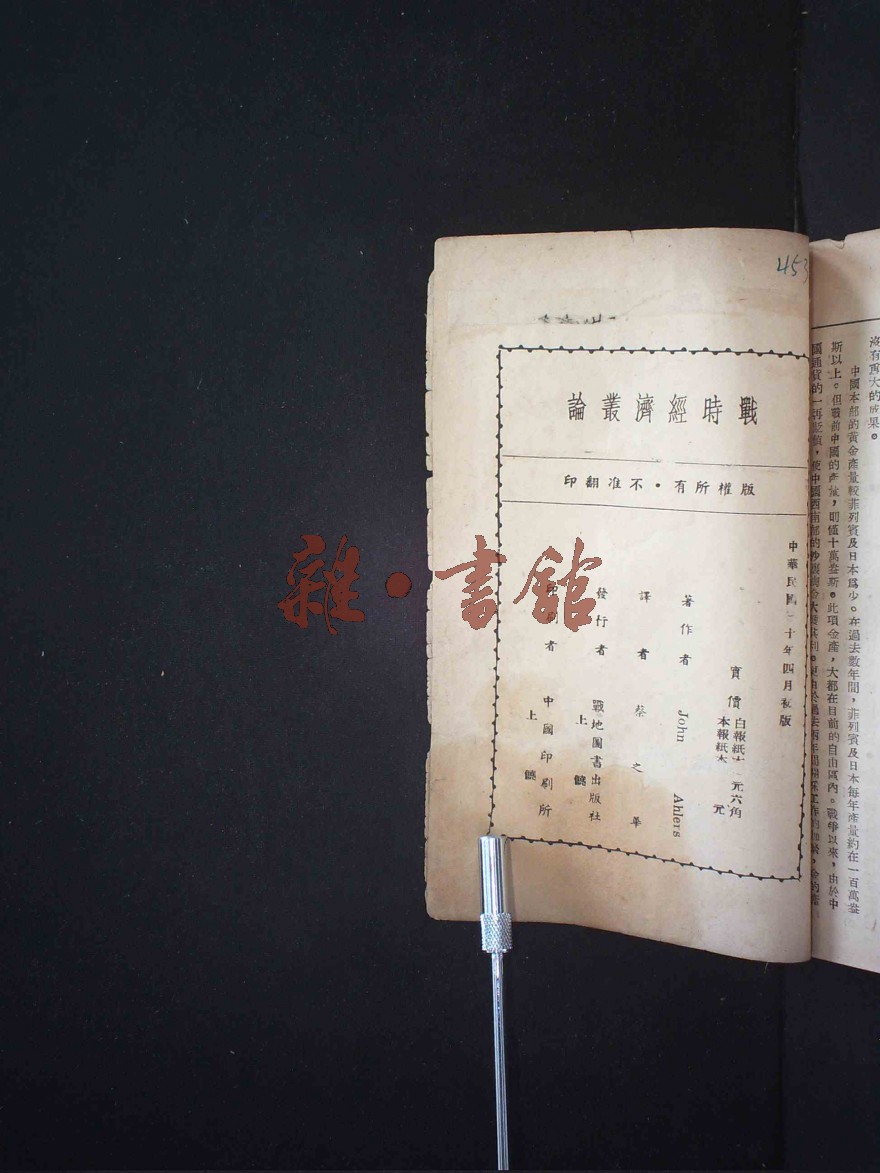 453
戰時經濟叢論
版權所有・不准翻印
中華民國
十年四月初版
實價
白報紙本
元六角
本報紙本
元
著作者 John Ahlers
譯者 蔡之華
發行者 戰地圖書出版社
上
印刷者 中國印刷所
上
沒有重大的成果。
中國本部的黃金產量較菲列賓及日本爲少。在過去數年間，菲列賓及日本每年產量約在一百萬盎
斯以上。但戰前中國的產量，則僅十萬盎斯。此項金產，大都在目前的自由區內。戰爭以來，由於中
國通貨的一再貶值，使中國西南部的
雜・書館